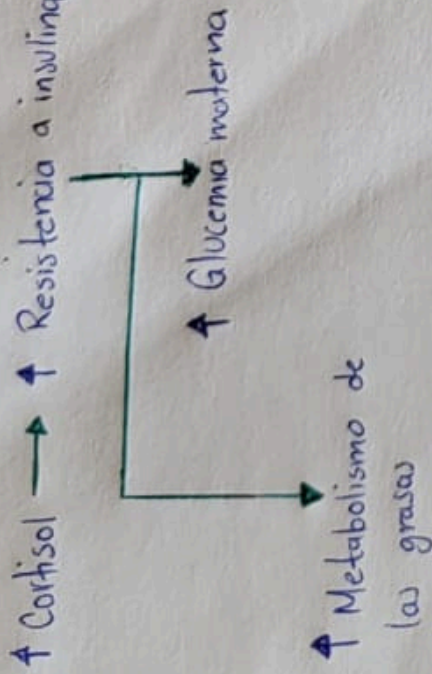 ↑ Cortisol → ↑ Resistencia a insulina
↑ Glucemia materna
↑ Metabolismo de
las grasas